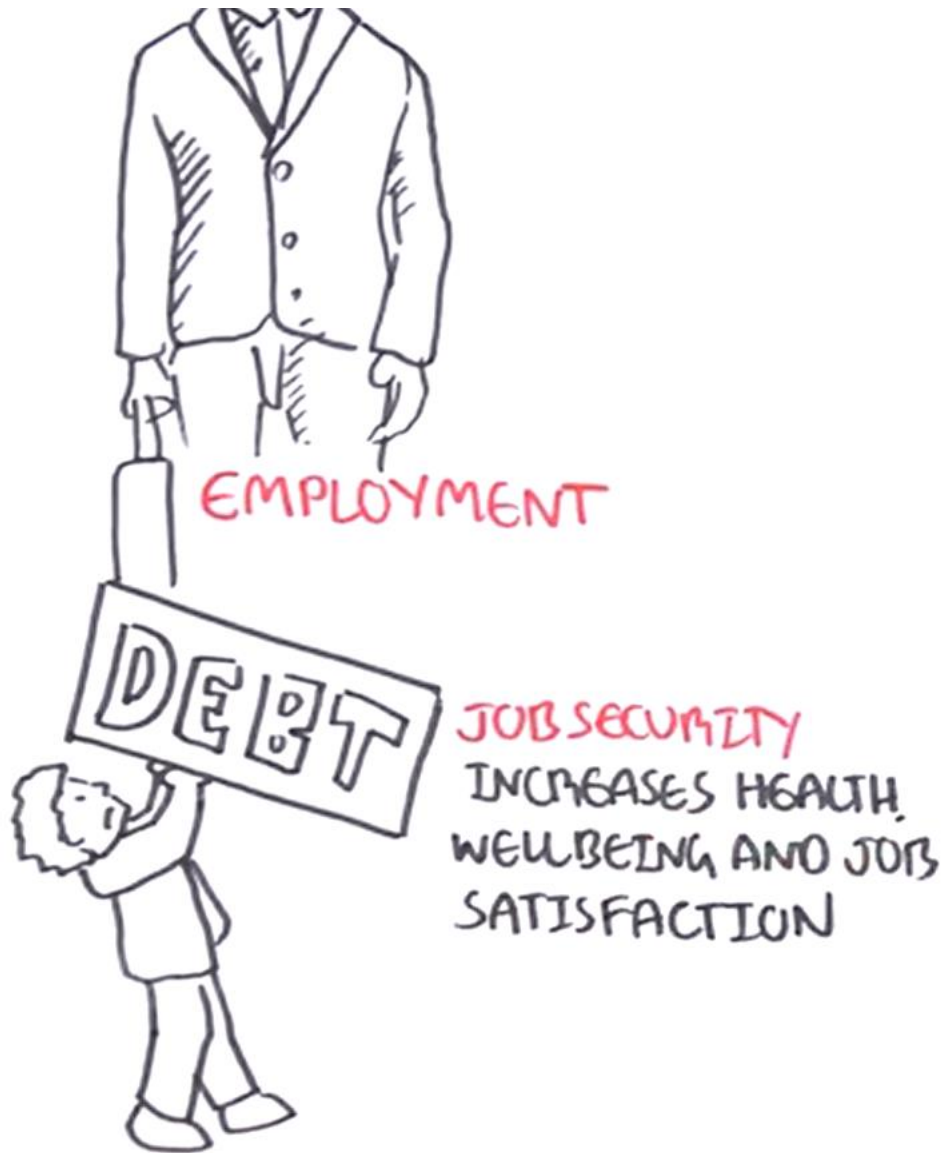 EMPLOYMENT
DEBT
JOB SECURITY
INCREASES HEALTH,
WELLBEING AND JOB
SATISFACTION